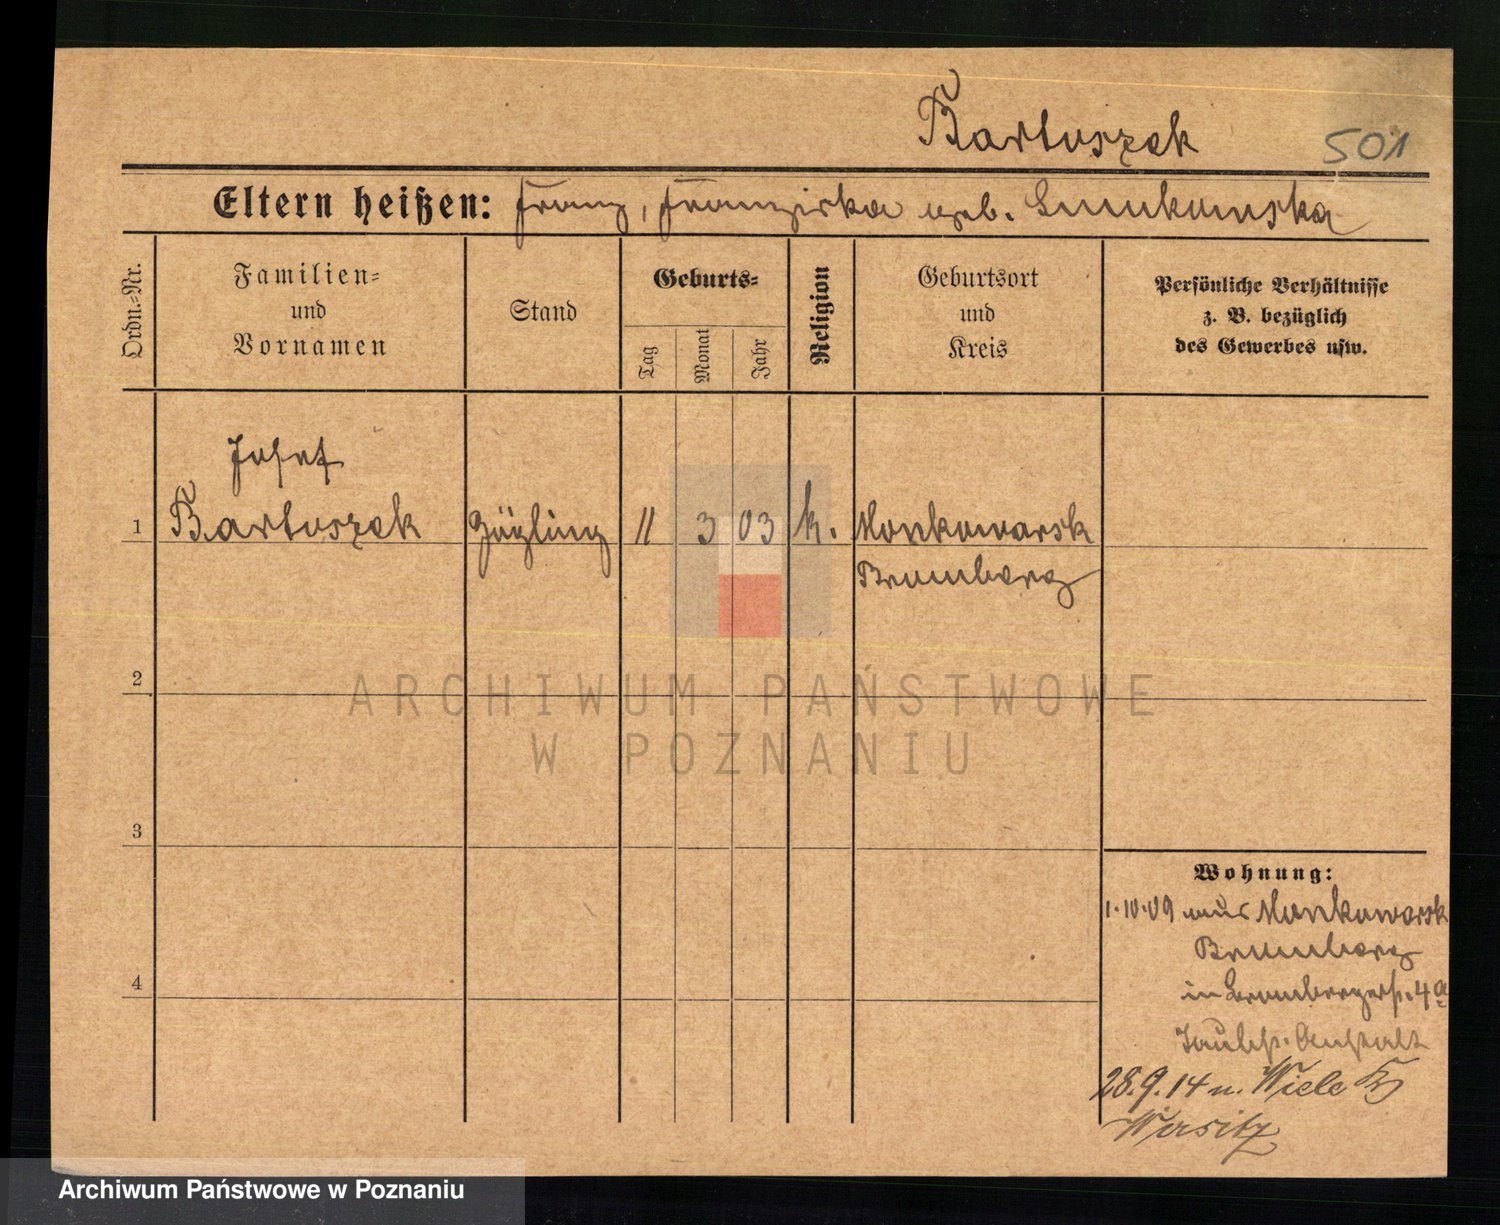 Bartuszek
501
Eltern heißen: Franz, Franziska geb.
Ordn.=Nr.
Familien=
und
Vornamen
Stand
Geburts=
Tag
Monat
Jahr
Religion
Geburtsort
und
Kreis
Persönliche Verhältnisse
z. B. bezüglich
des Gewerbes usw.
Josef
1 Bartuszek Zögling 11 3 03 k. Monkowarsk
Bromberg
2
3
4
Wohnung:
1.10.09 aus Monkowarsk
Bromberg
in Brombergerst. 4a
Taubst. Anstalt
28.9.14 n. Wiele Kr
Wirsitz
ARCHIWUM PAŃSTWOWE
W POZNANIU
Archiwum Państwowe w Poznaniu